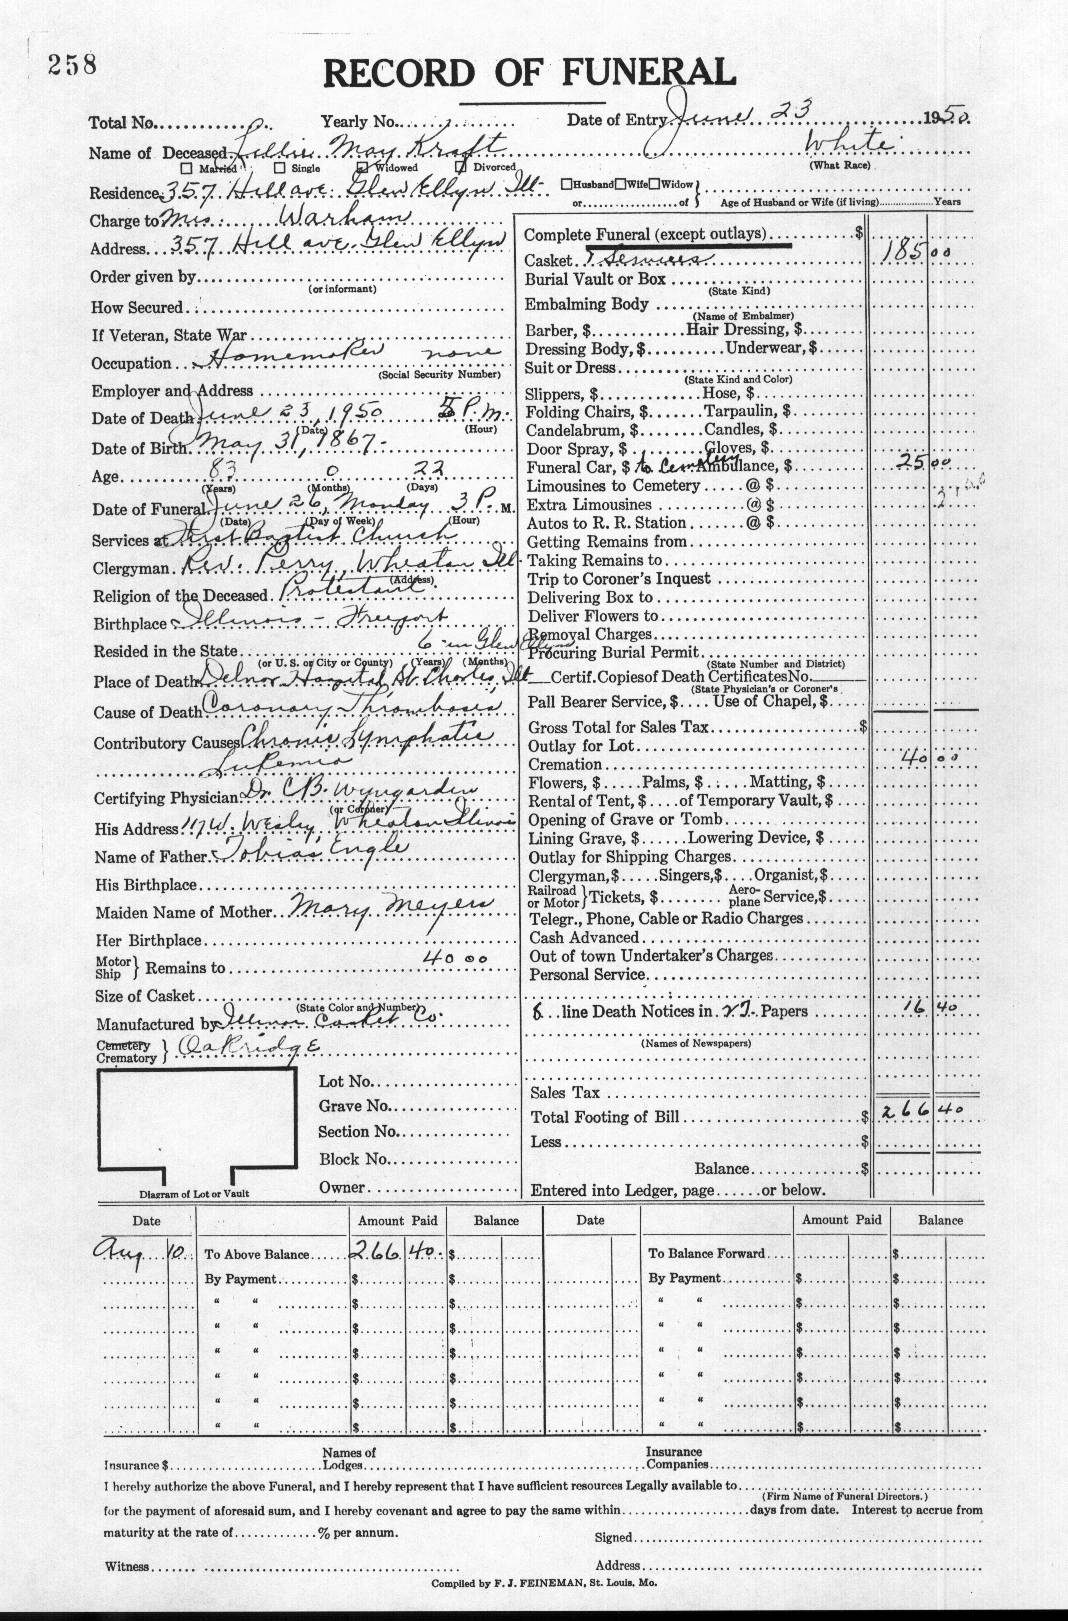 258
RECORD OF FUNERAL
Total No. Yearly No. Date of Entry June 23 1950.
Name of Deceased Lillie May Kraft White
(What Race)
☐ Married ☐ Single ☑ Widowed ☐ Divorced
Residence 357 Hill ave. Glen Ellyn Ill. ☐Husband☐Wife☐Widow
or of Age of Husband or Wife (if living) Years
Charge to Mrs. Warham
Address 357 Hill ave. Glen Ellyn
Order given by
(or informant)
How Secured
If Veteran, State War
Occupation Homemaker none
(Social Security Number)
Employer and Address
Date of Death June 23, 1950 5 P.m.
(Date) (Hour)
Date of Birth May 31, 1867-
Age 83 0 22
(Years) (Months) (Days)
Date of Funeral June 26, Monday 3 P. M.
(Date) (Day of Week) (Hour)
Services at First Baptist Church
Clergyman Rev. Perry, Wheaton Ill.
(Address)
Religion of the Deceased Protestant
Birthplace Illinois - Freeport
Resided in the State 6 in Glen Ellyn
(or U. S. or City or County) (Years) (Months)
Place of Death Delnor Hospital, St. Charles, Ill
Cause of Death Coronary Thrombosis,
Contributory Causes Chronic Lymphatic
Lukemia
Certifying Physician Dr. C.B. Wyngarden
(or Coroner)
His Address 117 W. Wesley, Wheaton Illinois
Name of Father Tobias Engle
His Birthplace
Maiden Name of Mother Mary Meyers
Her Birthplace
Motor
Ship } Remains to 40 00
Size of Casket
(State Color and Number)
Manufactured by Illinois Casket Co.
Cemetery
Crematory } Oakridge
Lot No.
Grave No.
Section No.
Block No.
Owner
Diagram of Lot or Vault
Complete Funeral (except outlays) $
Casket & Services 185 00
Burial Vault or Box
(State Kind)
Embalming Body
(Name of Embalmer)
Barber, $ Hair Dressing, $
Dressing Body, $ Underwear, $
Suit or Dress
(State Kind and Color)
Slippers, $ Hose, $
Folding Chairs, $ Tarpaulin, $
Candelabrum, $ Candles, $
Door Spray, $ Gloves, $
Funeral Car, $ to Cemetery Ambulance, $ 25 00
Limousines to Cemetery @ $
Extra Limousines @ $
Autos to R. R. Station @ $
Getting Remains from
Taking Remains to
Trip to Coroner's Inquest
Delivering Box to
Deliver Flowers to
Removal Charges
Procuring Burial Permit
(State Number and District)
Certif. Copies of Death Certificates No.
(State Physician's or Coroner's
Pall Bearer Service, $ Use of Chapel, $
Gross Total for Sales Tax $
Outlay for Lot
Cremation 40 00
Flowers, $ Palms, $ Matting, $
Rental of Tent, $ of Temporary Vault, $
Opening of Grave or Tomb
Lining Grave, $ Lowering Device, $
Outlay for Shipping Charges
Clergyman, $ Singers, $ Organist, $
Railroad
or Motor } Tickets, $ Aero-
plane Service, $
Telegr., Phone, Cable or Radio Charges
Cash Advanced
Out of town Undertaker's Charges
Personal Service
line Death Notices in Papers 16 40
(Names of Newspapers)
Sales Tax
Total Footing of Bill $ 266 40
Less $
Balance $
Entered into Ledger, page or below.
Date Amount Paid Balance Date Amount Paid Balance
Aug 10 To Above Balance 266 40 $ To Balance Forward $
By Payment $ $ By Payment $ $
" " $ $ " " $ $
" " $ $ " " $ $
" " $ $ " " $ $
" " $ $ " " $ $
" " $ $ " " $ $
" " $ $ " " $ $
Insurance $ Names of
Lodges Insurance
Companies
I hereby authorize the above Funeral, and I hereby represent that I have sufficient resources Legally available to
(Firm Name of Funeral Directors.)
for the payment of aforesaid sum, and I hereby covenant and agree to pay the same within days from date. Interest to accrue from
maturity at the rate of % per annum.
Signed
Witness Address
Compiled by F. J. FEINEMAN, St. Louis, Mo.